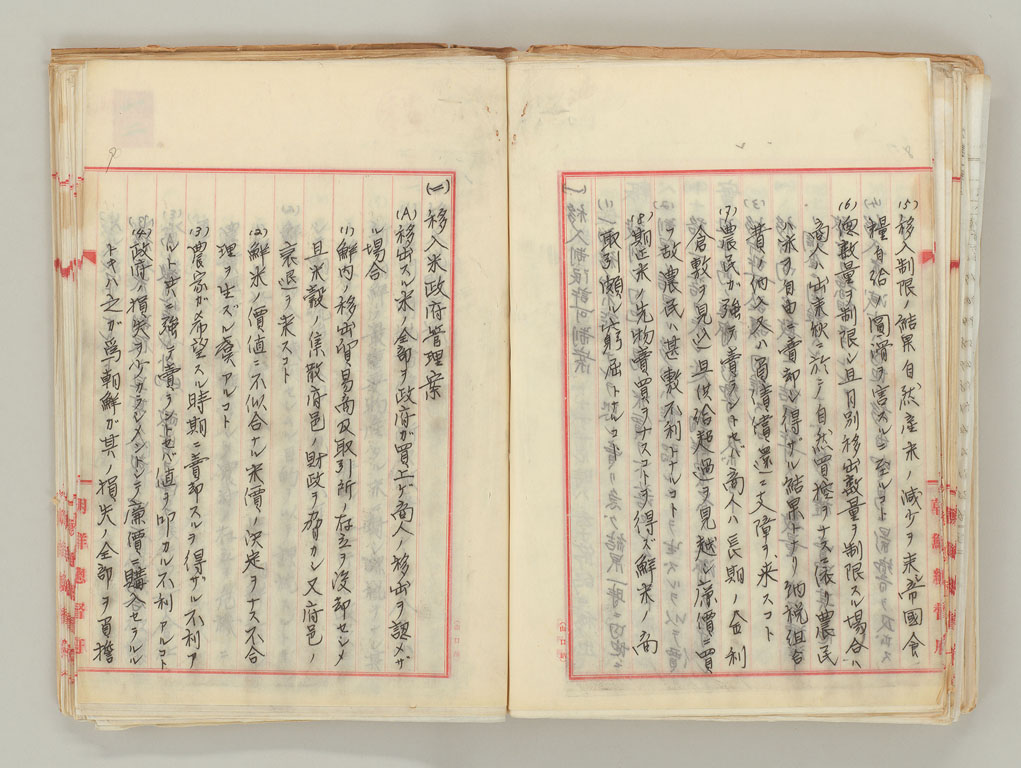 (5) 移入制限ノ結果自然産米ノ減少ヲ来シ帝國食
糧自給ノ圓滑ヲ害スルニ至ルコト
(6) 数量ヲ制限シ且月別移出数量ヲ制限スル場合ハ
商人ハ出来秋ニ於テ自然買控ヲナスニ依リ農民
ハ米ヲ自由ニ賣却シ得ザル結果トナリ納税組合
費ノ納入又ハ負債償還ニ支障ヲ来スコト
(7) 農民ガ強テ賣ラントセバ商人ハ長期ノ金利
倉敷ヲ見込ミ且供給超過ヲ見越シ廉價ニ買
フ故農民ハ甚敷不利トナルコト
(8) 期近米ノ先物賣買ヲナスコトヲ得ズ鮮米ノ商
取引頗ル窮屈トナルコト
(一) 移入米政府管理案
(A) 移出スル米ノ全部ヲ政府ガ買上ゲ商人ノ移出ヲ認メザ
ル場合
(1) 鮮内ノ移出貿易商及取引所ノ存立ヲ没却セシメ
且米穀ノ集散府邑ノ財政ヲ脅カシ又府邑ノ
衰退ヲ来スコト
(2) 鮮米ノ價値ニ不似合ナル米價ノ決定ヲナス不合
理ヲ生ズル虞アルコト
(3) 農家ガ希望スル時期ニ賣却スルヲ得ザル不利ア
ルト共ニ強テ賣ラントセバ値ヲ叩カル不利アルコト
(4) 政府ノ損失ヲ少カラシメントシテ廉價ニ購入セラルル
トキハ之ガ為朝鮮ガ其ノ損失ノ全部ヲ負擔
朝鮮總督府